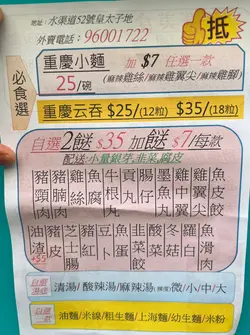 地址:水渠道52號皇太子地
外賣電話:96001722
抵
必食選
重慶小麵
25/碗
加 $7 任選一款
(麻辣雞絲/麻辣雞翼尖/麻辣雞腳)
重慶云吞 $25/(12粒) $35/(18粒)
自選2餸 $35 加餸 $7/每款
配送:小量銀芽,韭菜,腐皮
豬頸肉
豬腩肉
雞絲
魚腐
牛根丸
貢丸
腸仔
墨魚丸
雞中翼
雞翼尖
魚皮餃
油渣
+$5
豬皮
芝士腸
豬紅
豆卜
魚蛋
韭菜餃
酸菜
冬菇
蘿白
魚滑肉
自選湯底
清湯/ 酸辣湯/麻辣湯(辣度)微/小/中/大
以選一款
油麵/米線/粗生麵/上海麵/幼生麵/米粉